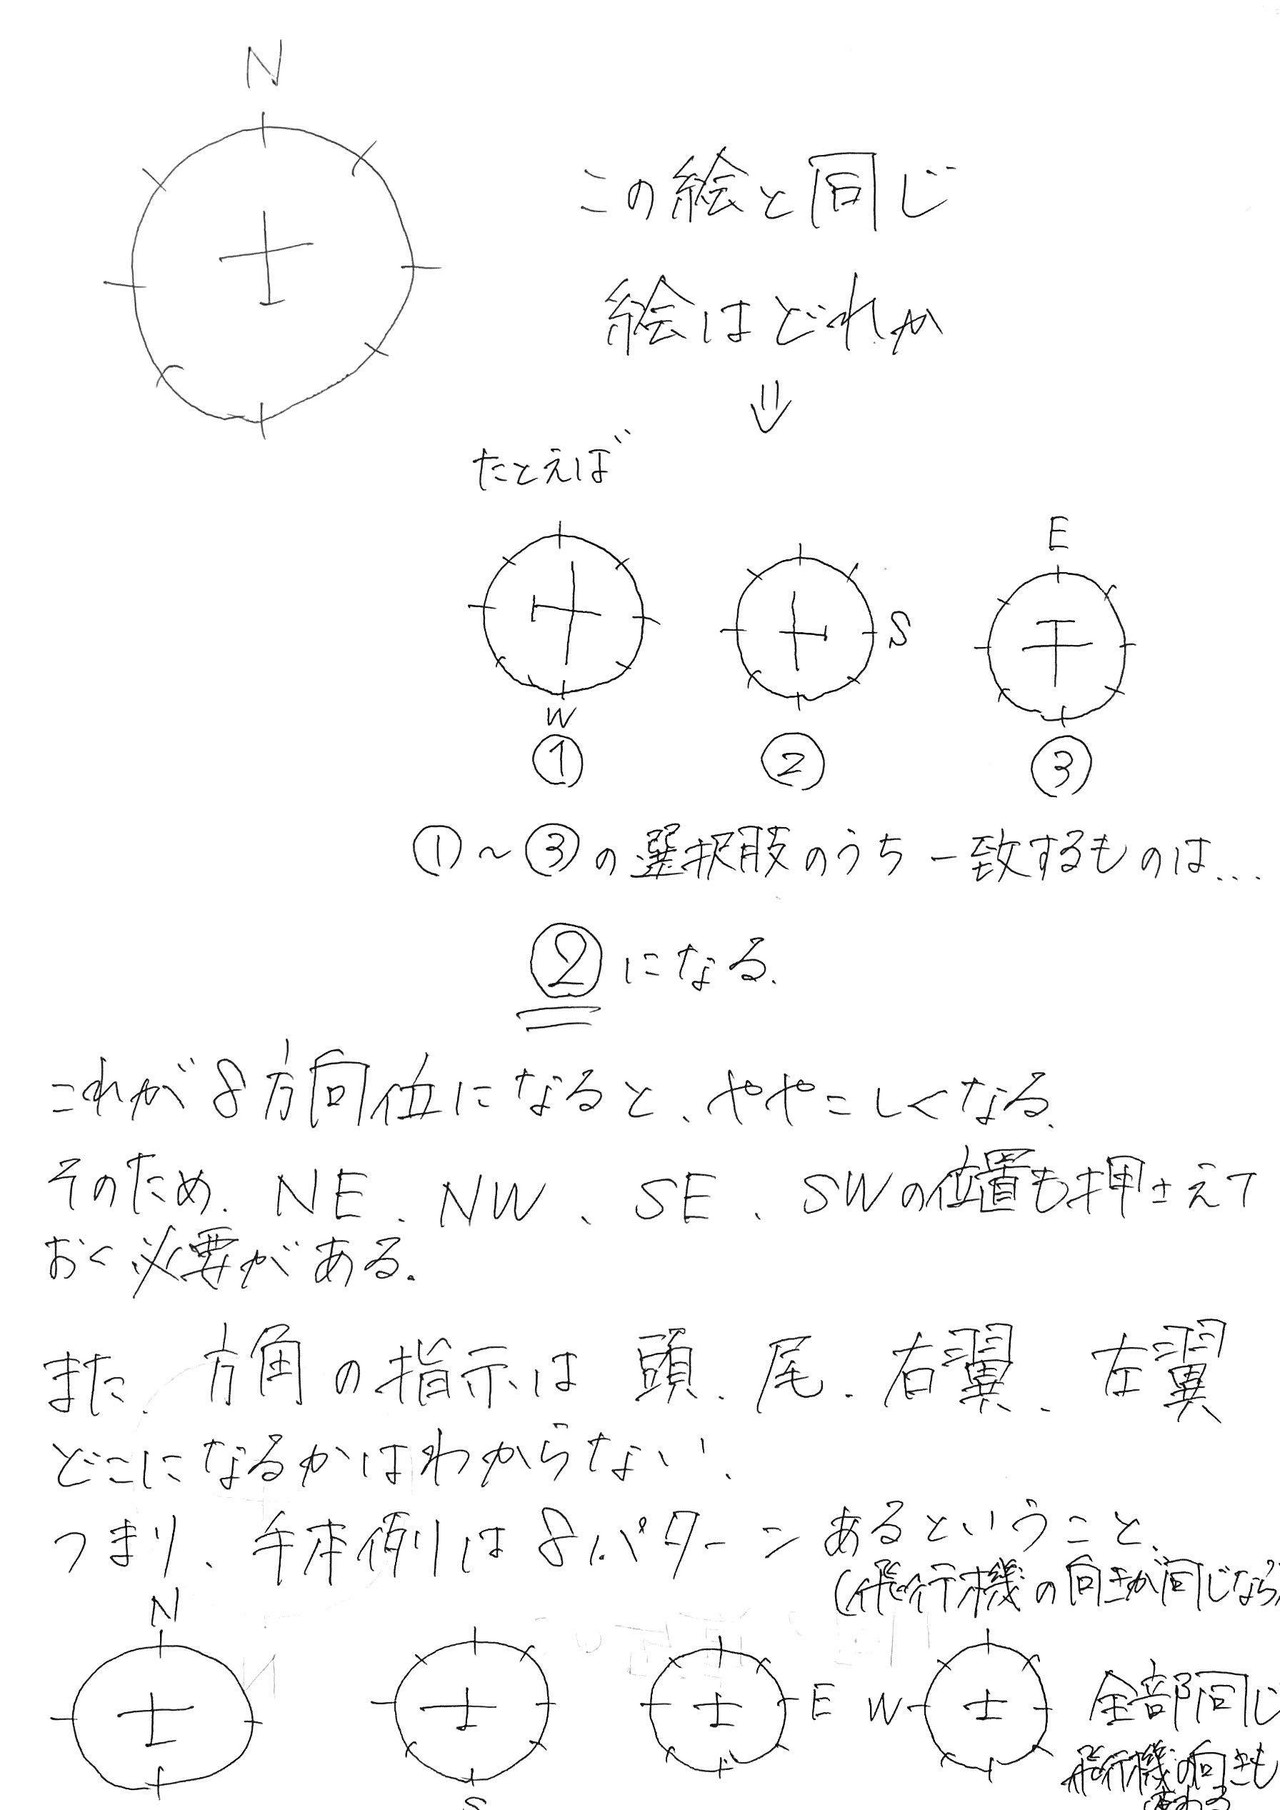 N
この絵と同じ
絵はどれか
⇓
たとえば
E
S
W
① ② ③
①～③の選択肢のうち一致するものは…
②になる.
これが8方向位になると、ややこしくなる.
そのため、NE、NW、SE、SWの位置も押さえて
おく必要がある.
また、方角の指示は頭、尾、右翼、左翼
どこになるかはわからない.
つまり、手本例は8パターンあるということ、
(飛行機の向きが同じなら)
N
E W 全部同じ
S
飛行機の向きも
変わる